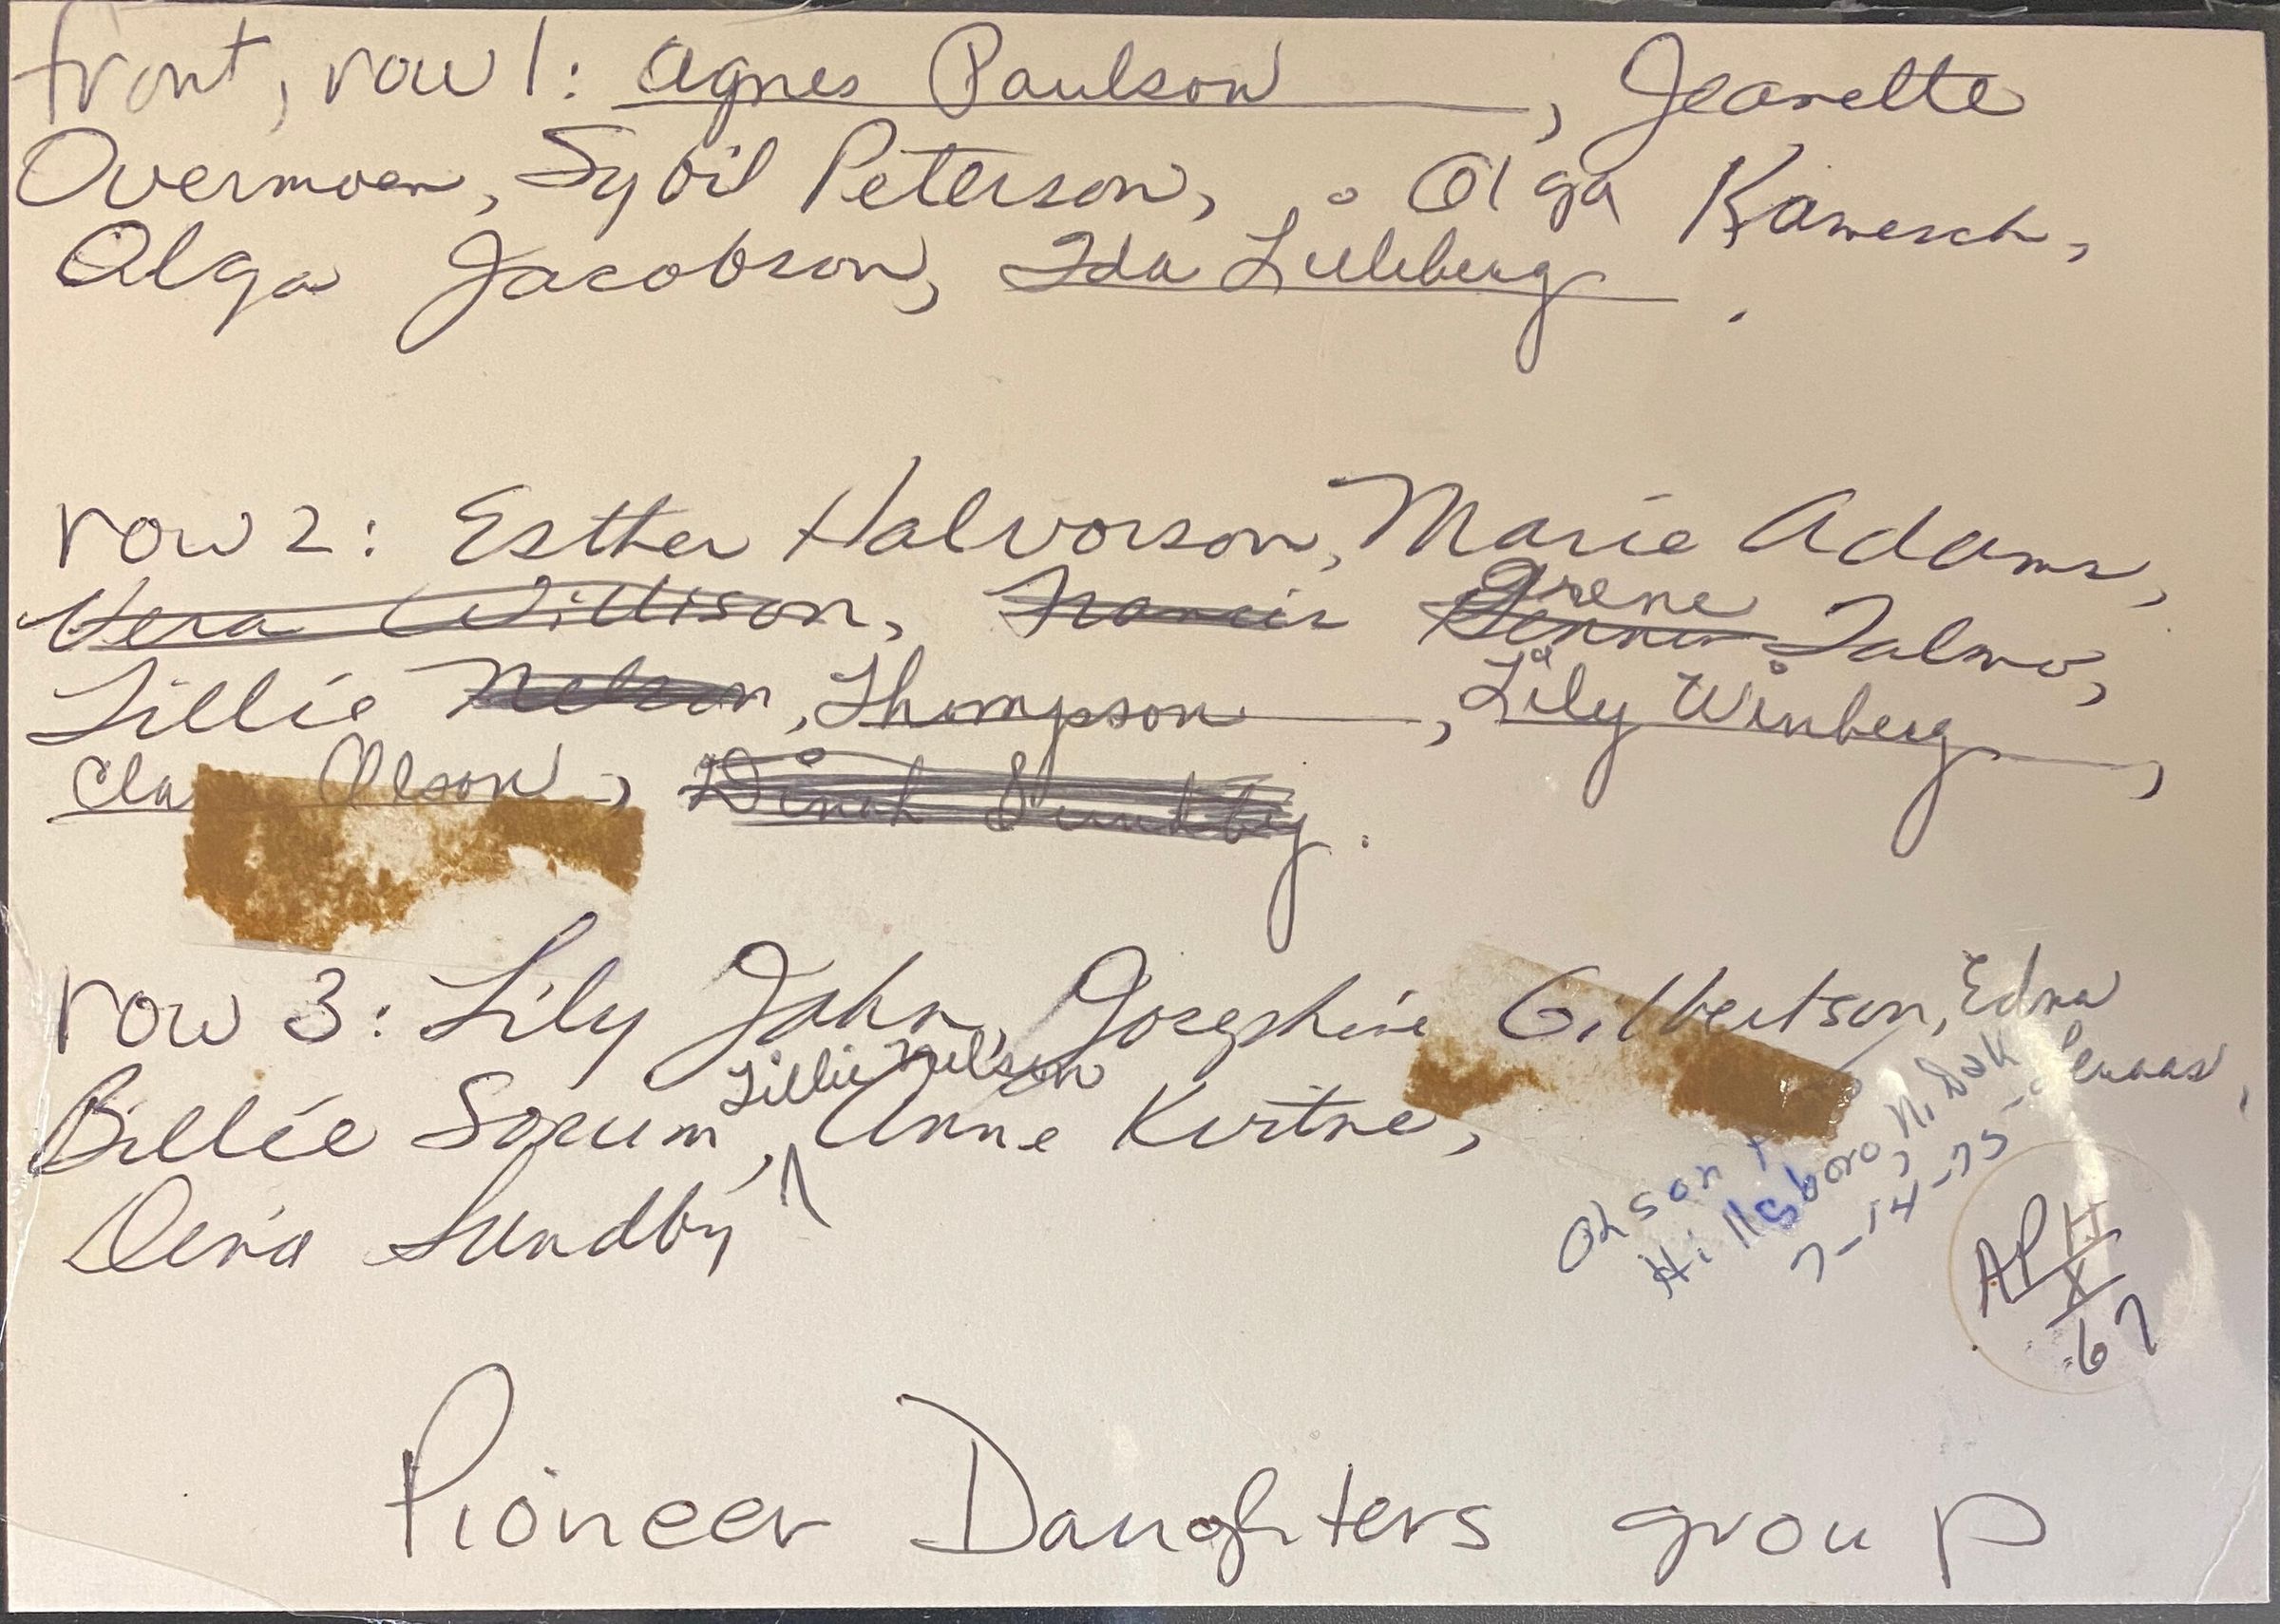 front, row 1: Agnes Paulson, Jeanette
Overmoen, Sybil Peterson, Olga Kamesch,
Olga Jacobson, Ida Lilleberg.
row 2: Esther Halvorson, Marie Adams,
Vera Willison, Francis Irene Talmo,
Lillie Nelson, Thompson, Lily Winberg,
Cla Olson, Dinah Sundby.
row 3: Lily Jahn, Josephine Gilbertson, Edna
Lillie Nelson
Billie Sorum, Anne Kirtne,
Dena Sundby
Olson
Hillsboro, N. Dak
7-14-75
APH
X
67
Pioneer Daughters group